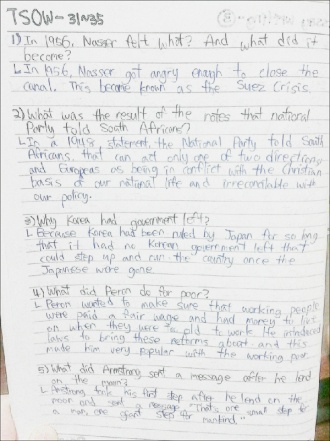 TSOW-31~35
1) In 1956, Nasser felt what? And what did it
become?
L In 1956, Nasser got angry enough to close the
canal. This became known as the Suez Crisis.
2) What was the result of the notes that national
Party told South Africans?
L In a 1948 statement, the National Party told South
Africans, that can act only one of two directions
and Europeas as being in conflict with the Christian
basis of our national life and irreconcilable with
our policy.
3) Why Korea had government left?
L Because Korea has been ruled by Japan for so long
that it had no Korean government left that
could step up and run the country once the
Japanese were gone.
4) What did Peron do for poor?
L Peron wanted to make sure that working people
were paid a fair wage and had money to live
on when they were too old to work. He introduced
laws to bring these reforms about and this
made him very popular with the working poor.
5) What did Armstrong sent a message after he lend
on the moon?
L Armstrong took his first step after he lend on the
moon and sent a message "That's one small step for
a man, one giant step for mankind."